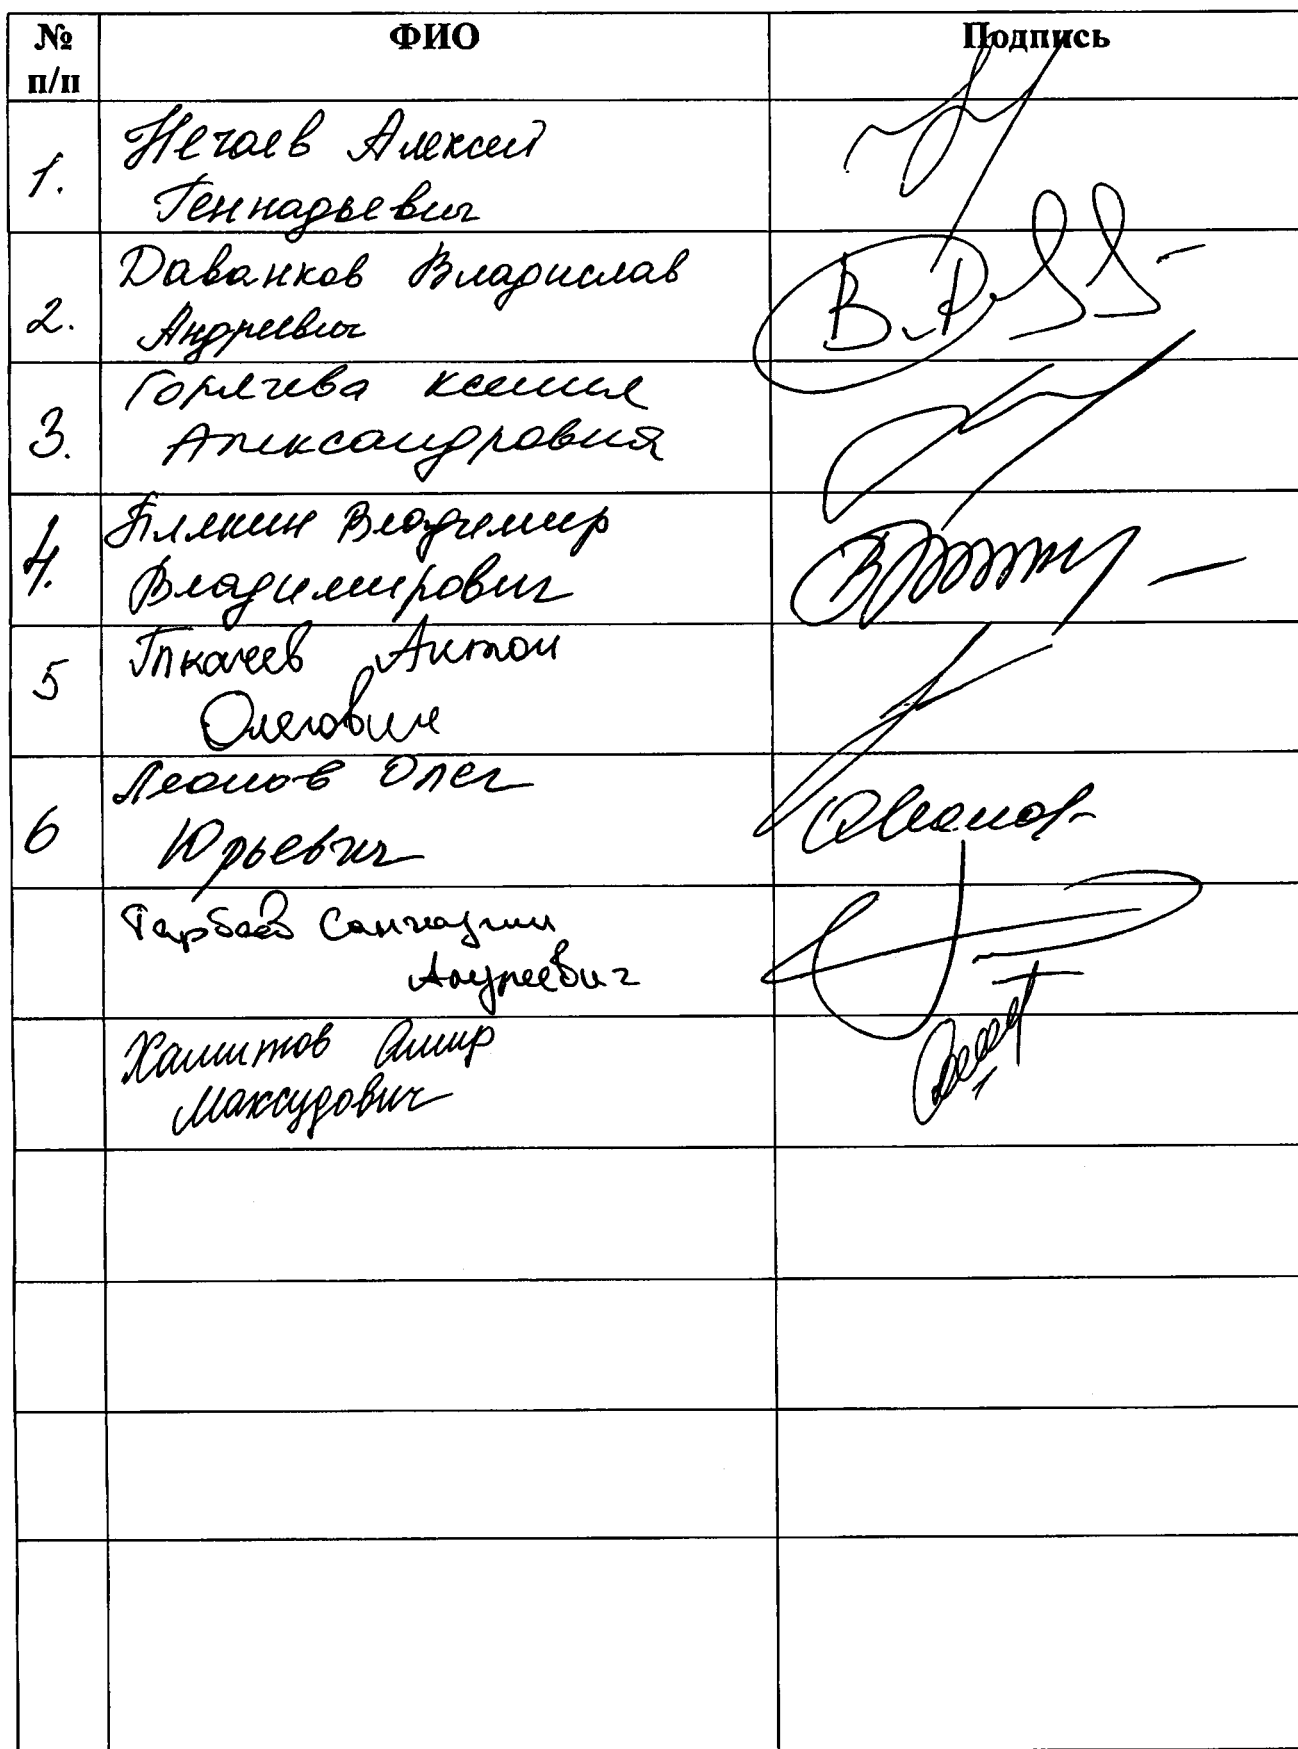 № п/п ФИО Подпись
1. Нечаев Алексей
Геннадьевич
2. Даванков Владислав
Андреевич
3. Горячева Ксения
Александровна
4. Плякин Владимир
Владимирович
5 Ткачев Антон
Олегович
6 Леонов Олег
Юрьевич
Тарбаев Сангаджи
Андреевич
Хамитов Амир
Махсудович